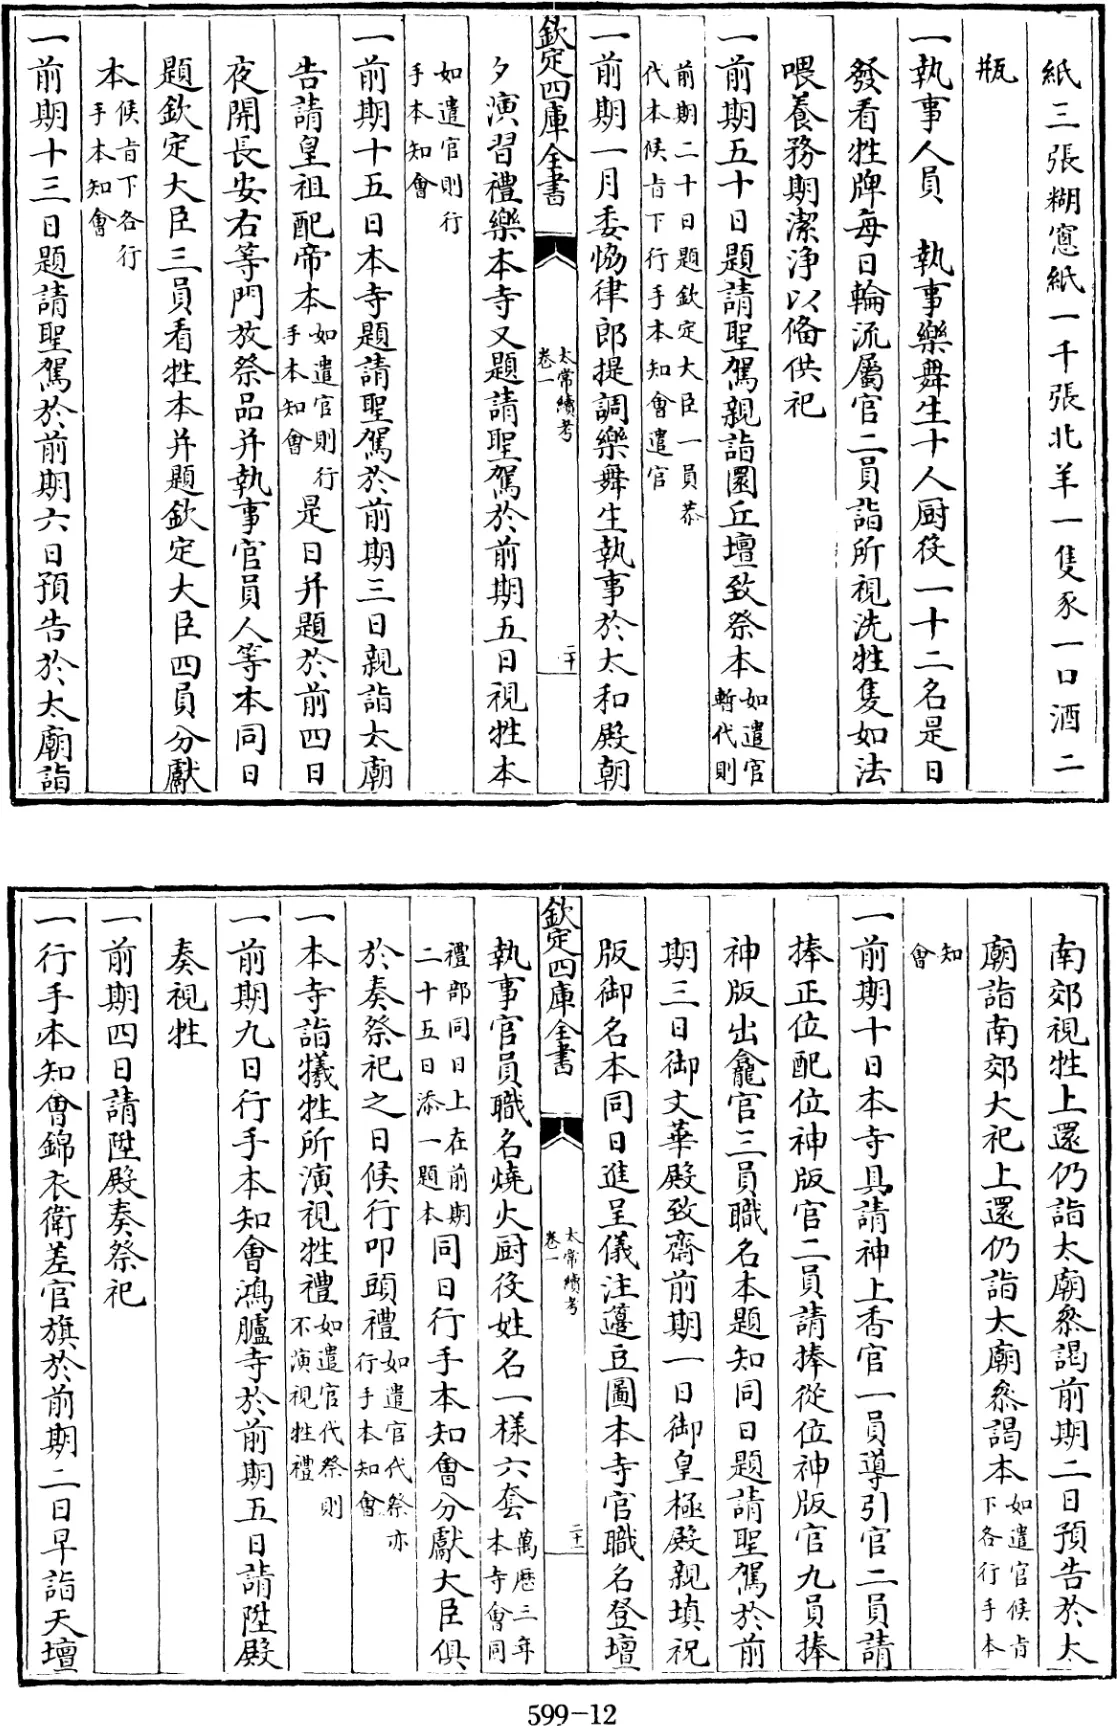 紙三張糊窓紙一千張北羊一隻豕一口酒二
瓶
一執事人員　執事樂舞生十人厨役一十二名是日
發看牲牌每日輪流屬官二員詣所視洗牲隻如法
喂養務期潔淨以俻供祀
一前期五十日題請聖駕親詣圜丘壇致祭本如遣官暫代則
前期二十日題欽定大臣一員恭代本候旨下行手本知會遣官
一前期一月委恊律郎提調樂舞生執事於太和殿朝
欽定四庫全書
太常續考
卷一
二十
夕演習禮樂本寺又題請聖駕於前期五日視牲本
如遣官則行手本知會
一前期十五日本寺題請聖駕於前期三日親詣太廟
告請皇祖配帝本如遣官則行手本知會是日并題於前四日
夜開長安右等門放祭品并執事官員人等本同日
題欽定大臣三員看牲本并題欽定大臣四員分獻
本候旨下各行手本知會
一前期十三日題請聖駕於前期六日預告於太廟詣
南郊視牲上還仍詣太廟叅謁前期二日預告於太
廟詣南郊大祀上還仍詣太廟叅謁本如遣官候旨下各行手本
知會
一前期十日本寺具請神上香官一員導引官二員請
捧正位配位神版官二員請捧從位神版官九員捧
神版出龕官三員職名本題知同日題請聖駕於前
期三日御文華殿致齋前期一日御皇極殿親填祝
版御名本同日進呈儀注籩豆圖本寺官職名登壇
欽定四庫全書
太常續考
卷一
二十一
執事官員職名燒火厨役姓名一樣六套萬歴三年本寺會同
禮部同日上在前期二十五日添一題本同日行手本知會分獻大臣俱
於奏祭祀之日候行叩頭禮如遣官代祭亦行手本知會
一本寺詣犧牲所演視牲禮如遣官代祭則不演視牲禮
一前期九日行手本知會鴻臚寺於前期五日請陞殿
奏視牲
一前期四日請陞殿奏祭祀
一行手本知會錦衣衛差官旗於前期二日早詣天壇
599-12